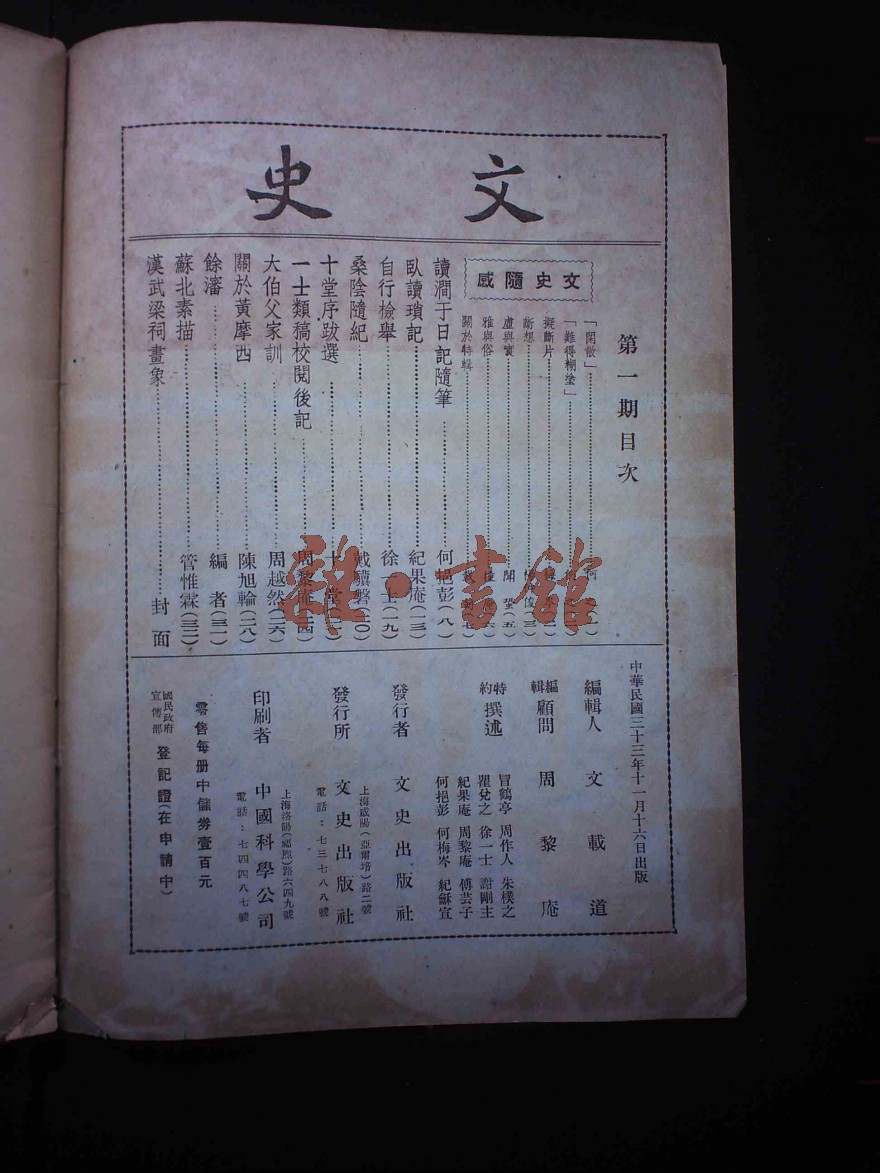 文史
第一期目次
文史隨感
「閑散」
「難得糊塗」
擬斷片
斷想
虛與實
雅與俗
關於特輯
讀澗于日記隨筆 何挹彭(八)
臥讀瑣記 紀果庵(一三)
自行檢舉 徐一士(一九)
桑陰隨紀 戴驥磐(二〇)
十堂序跋選 十堂
一士類稿校閱後記 周黎庵(二四)
大伯父家訓 周越然(二六)
關於黃摩西 陳旭輪(二八)
餘瀋 編者(三一)
蘇北素描 管惟霖(三二)
漢武梁祠畫象 封面
中華民國三十三年十一月十六日出版
編輯人 文載道
編輯顧問 周黎庵
特約撰述
冒鶴亭 周作人 朱樸之
瞿兌之 徐一士 謝剛主
紀果庵 周黎庵 傅芸子
何挹彭 何梅岑 紀穌宣
發行者 文史出版社
上海咸陽(亞爾培)路二號
發行所 文史出版社
電話:七三七八八號
上海洛陽(福煦)路六四九號
印刷者 中國科學公司
電話:七四四八七號
零售每册中儲劵壹百元
國民政府宣傳部 登記證(在申請中)
雜·書館